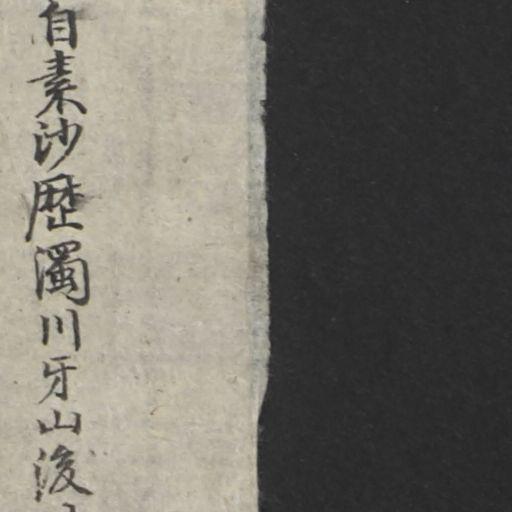 自素沙歷濁川牙山後